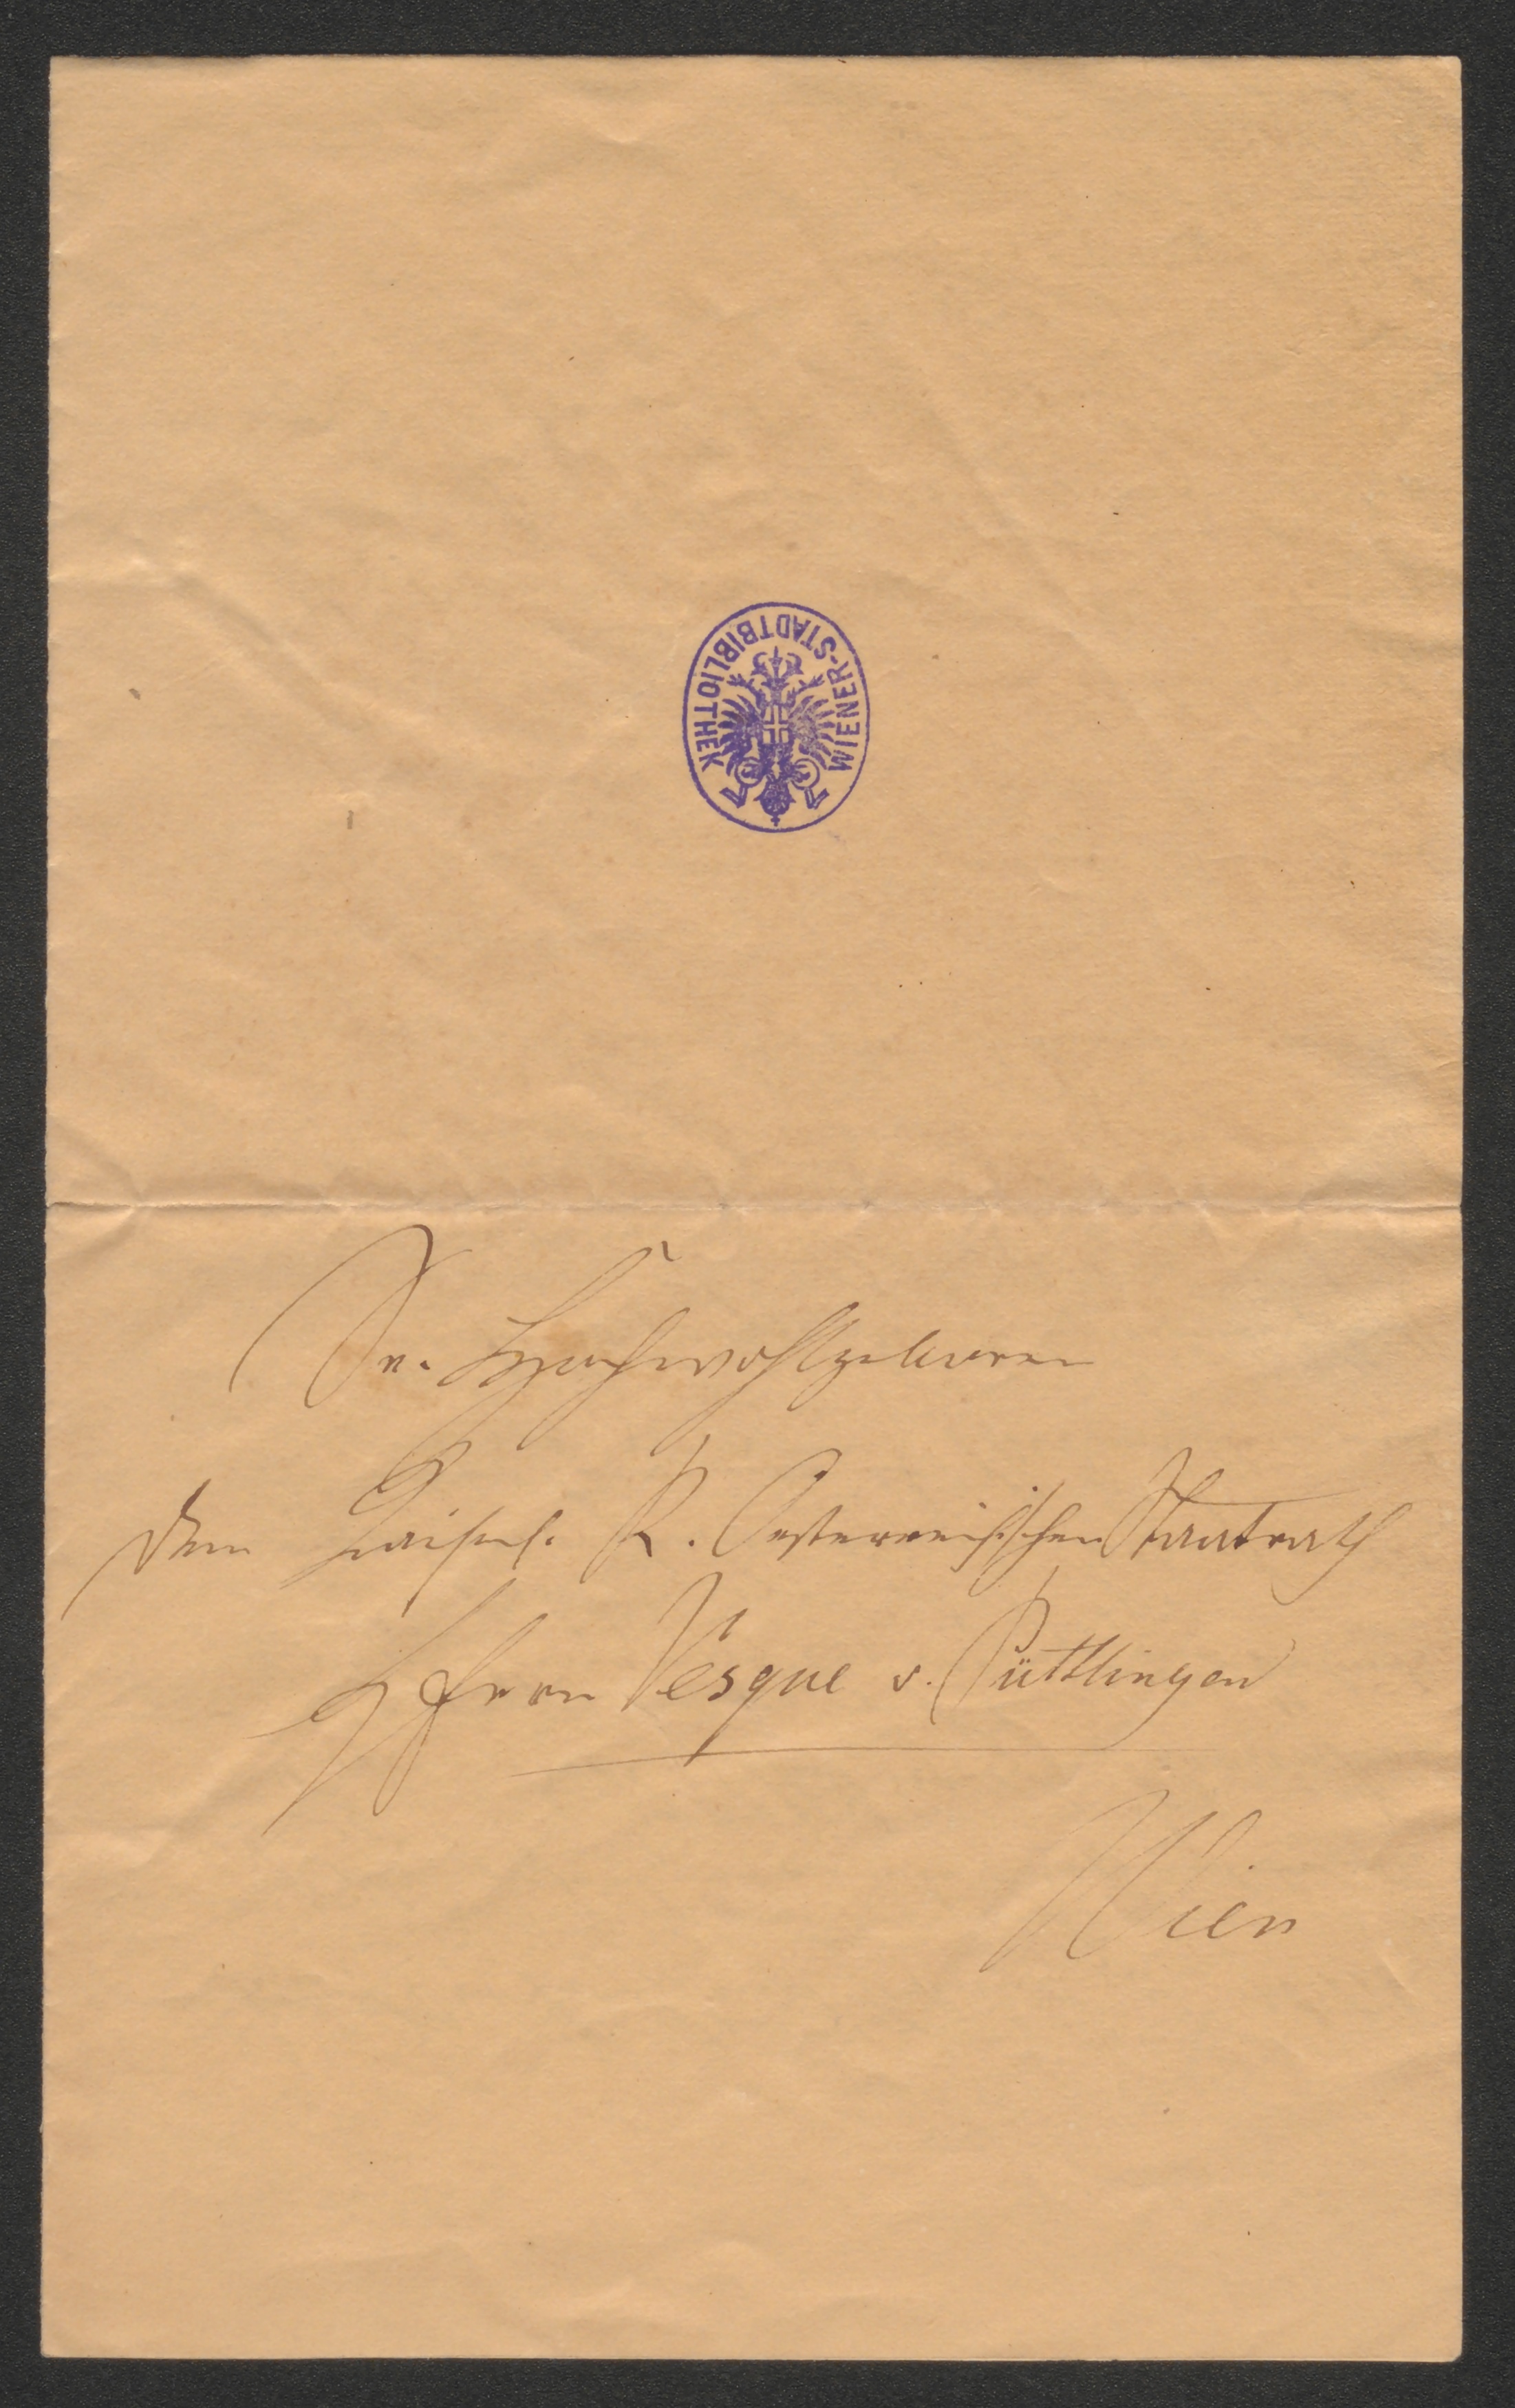 WIENER-STADTBIBLIOTHEK
Sr. Hochwohlgeboren
dem Kaiserl. K. Oesterreichischen Staatrath
Herrn Vesque v. Püttlingen
Wien